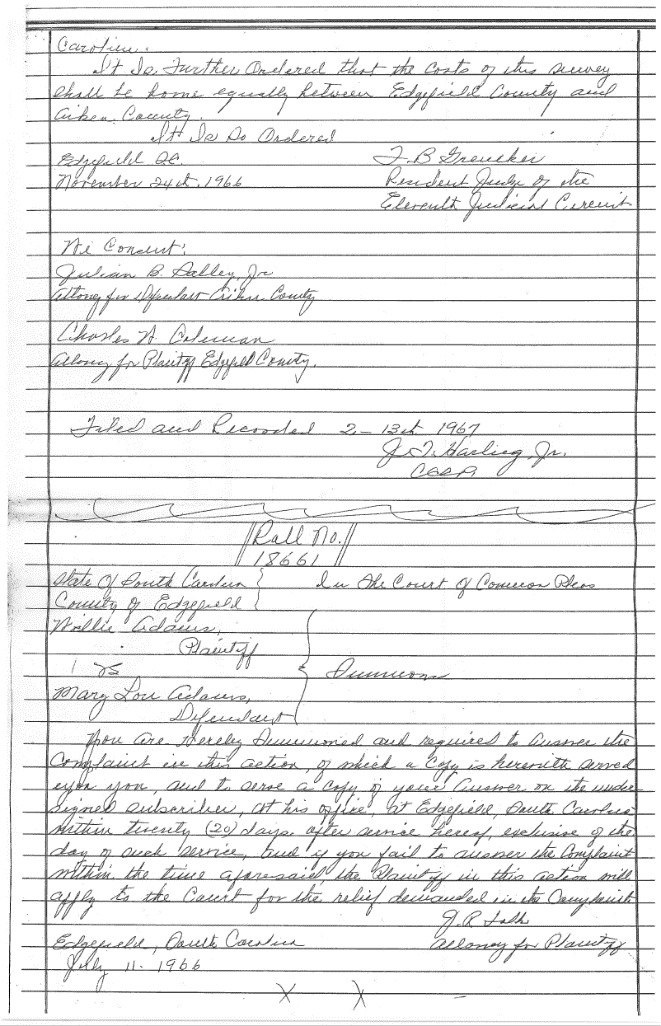 Carolina.
It Is Further Ordered that the costs of this survey
shall be borne equally between Edgefield County and
Aiken County.
It Is So Ordered
Edgefield SC.
November 24th, 1966
T. B Greneker
Resident Judge of the
Eleventh Judicial Circuit
We Consent:
Julian B. Salley, Jr
Attorney for Defendant Aiken County
Charles H. Coleman
Attorney for Plaintiff Edgefield County.
Filed and Recorded 2-13th 1967
J. T. Harling, Jr.
Roll No.
18661
State Of South Carolina
County of Edgefield
In The Court Of Common Pleas
Willie Adams,
Plaintiff
vs
Summons
Mary Lou Adams,
Defendant
You are Hereby Summoned and required to answer the
Complaint in this action, of which a Copy is herewith served
upon you, and to serve a copy of your answer on the under
signed subscriber, at his office, at Edgefield, South Carolina
within twenty (20) days, after service hereof, exclusive of the
day of such service, and if you fail to answer the Complaint
within the time aforesaid, the Plaintiff in this action will
apply to the Court for the relief demanded in the Complaint.
J. R. Folk
Attorney for Plaintiff
Edgefield, South Carolina
July 11. 1966
X X